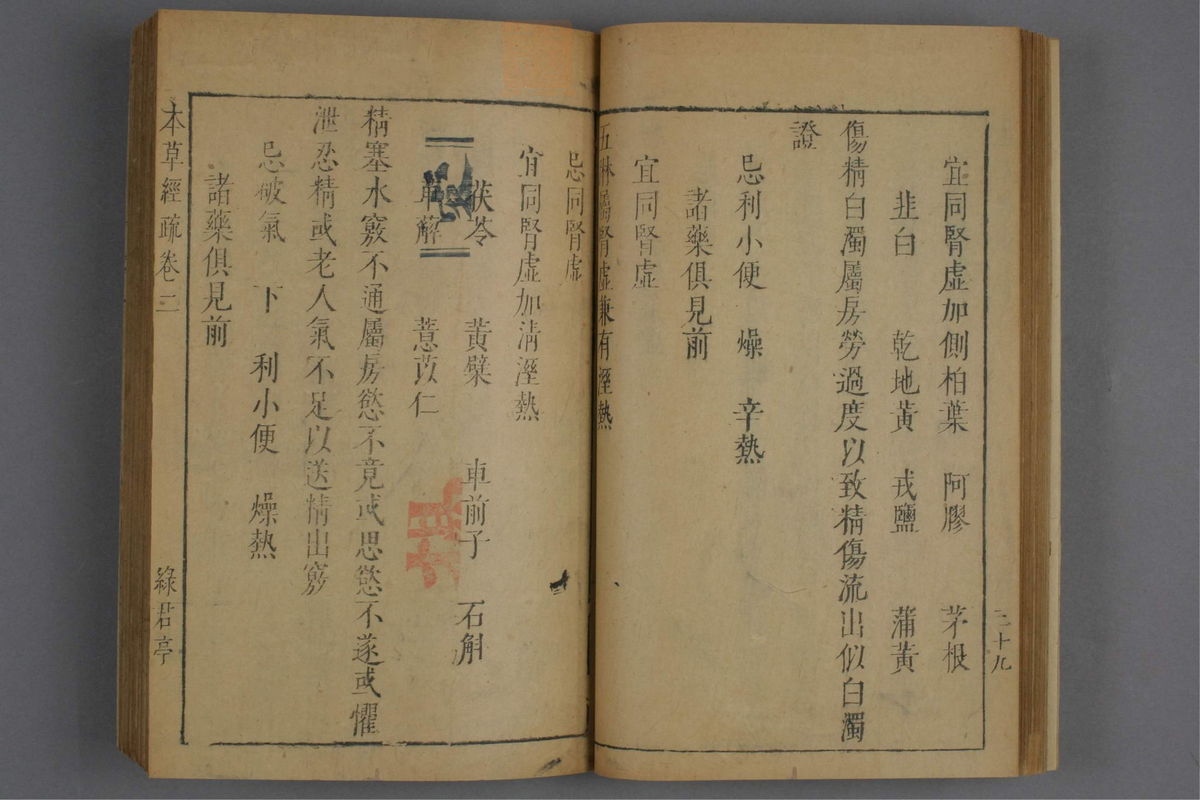 三十九
宜同腎虛加側柏葉 阿膠 茅根
韭白 乾地黃 戎鹽 蒲黃
傷精白濁屬房勞過度以致精傷流出似白濁
證
忌利小便 燥 辛熱
諸藥俱見前
宜同腎虛
五淋屬腎虛兼有溼熱
忌同腎虛
宜同腎虛加清溼熱
茯苓 黃檗 車前子 石斛
萆薢 薏苡仁
精塞水竅不通屬房慾不竟或思慾不遂或懼
泄忍精或老人氣不足以送精出竅
忌破氣 下 利小便 燥熱
諸藥俱見前
本草經疏卷二 綠君亭